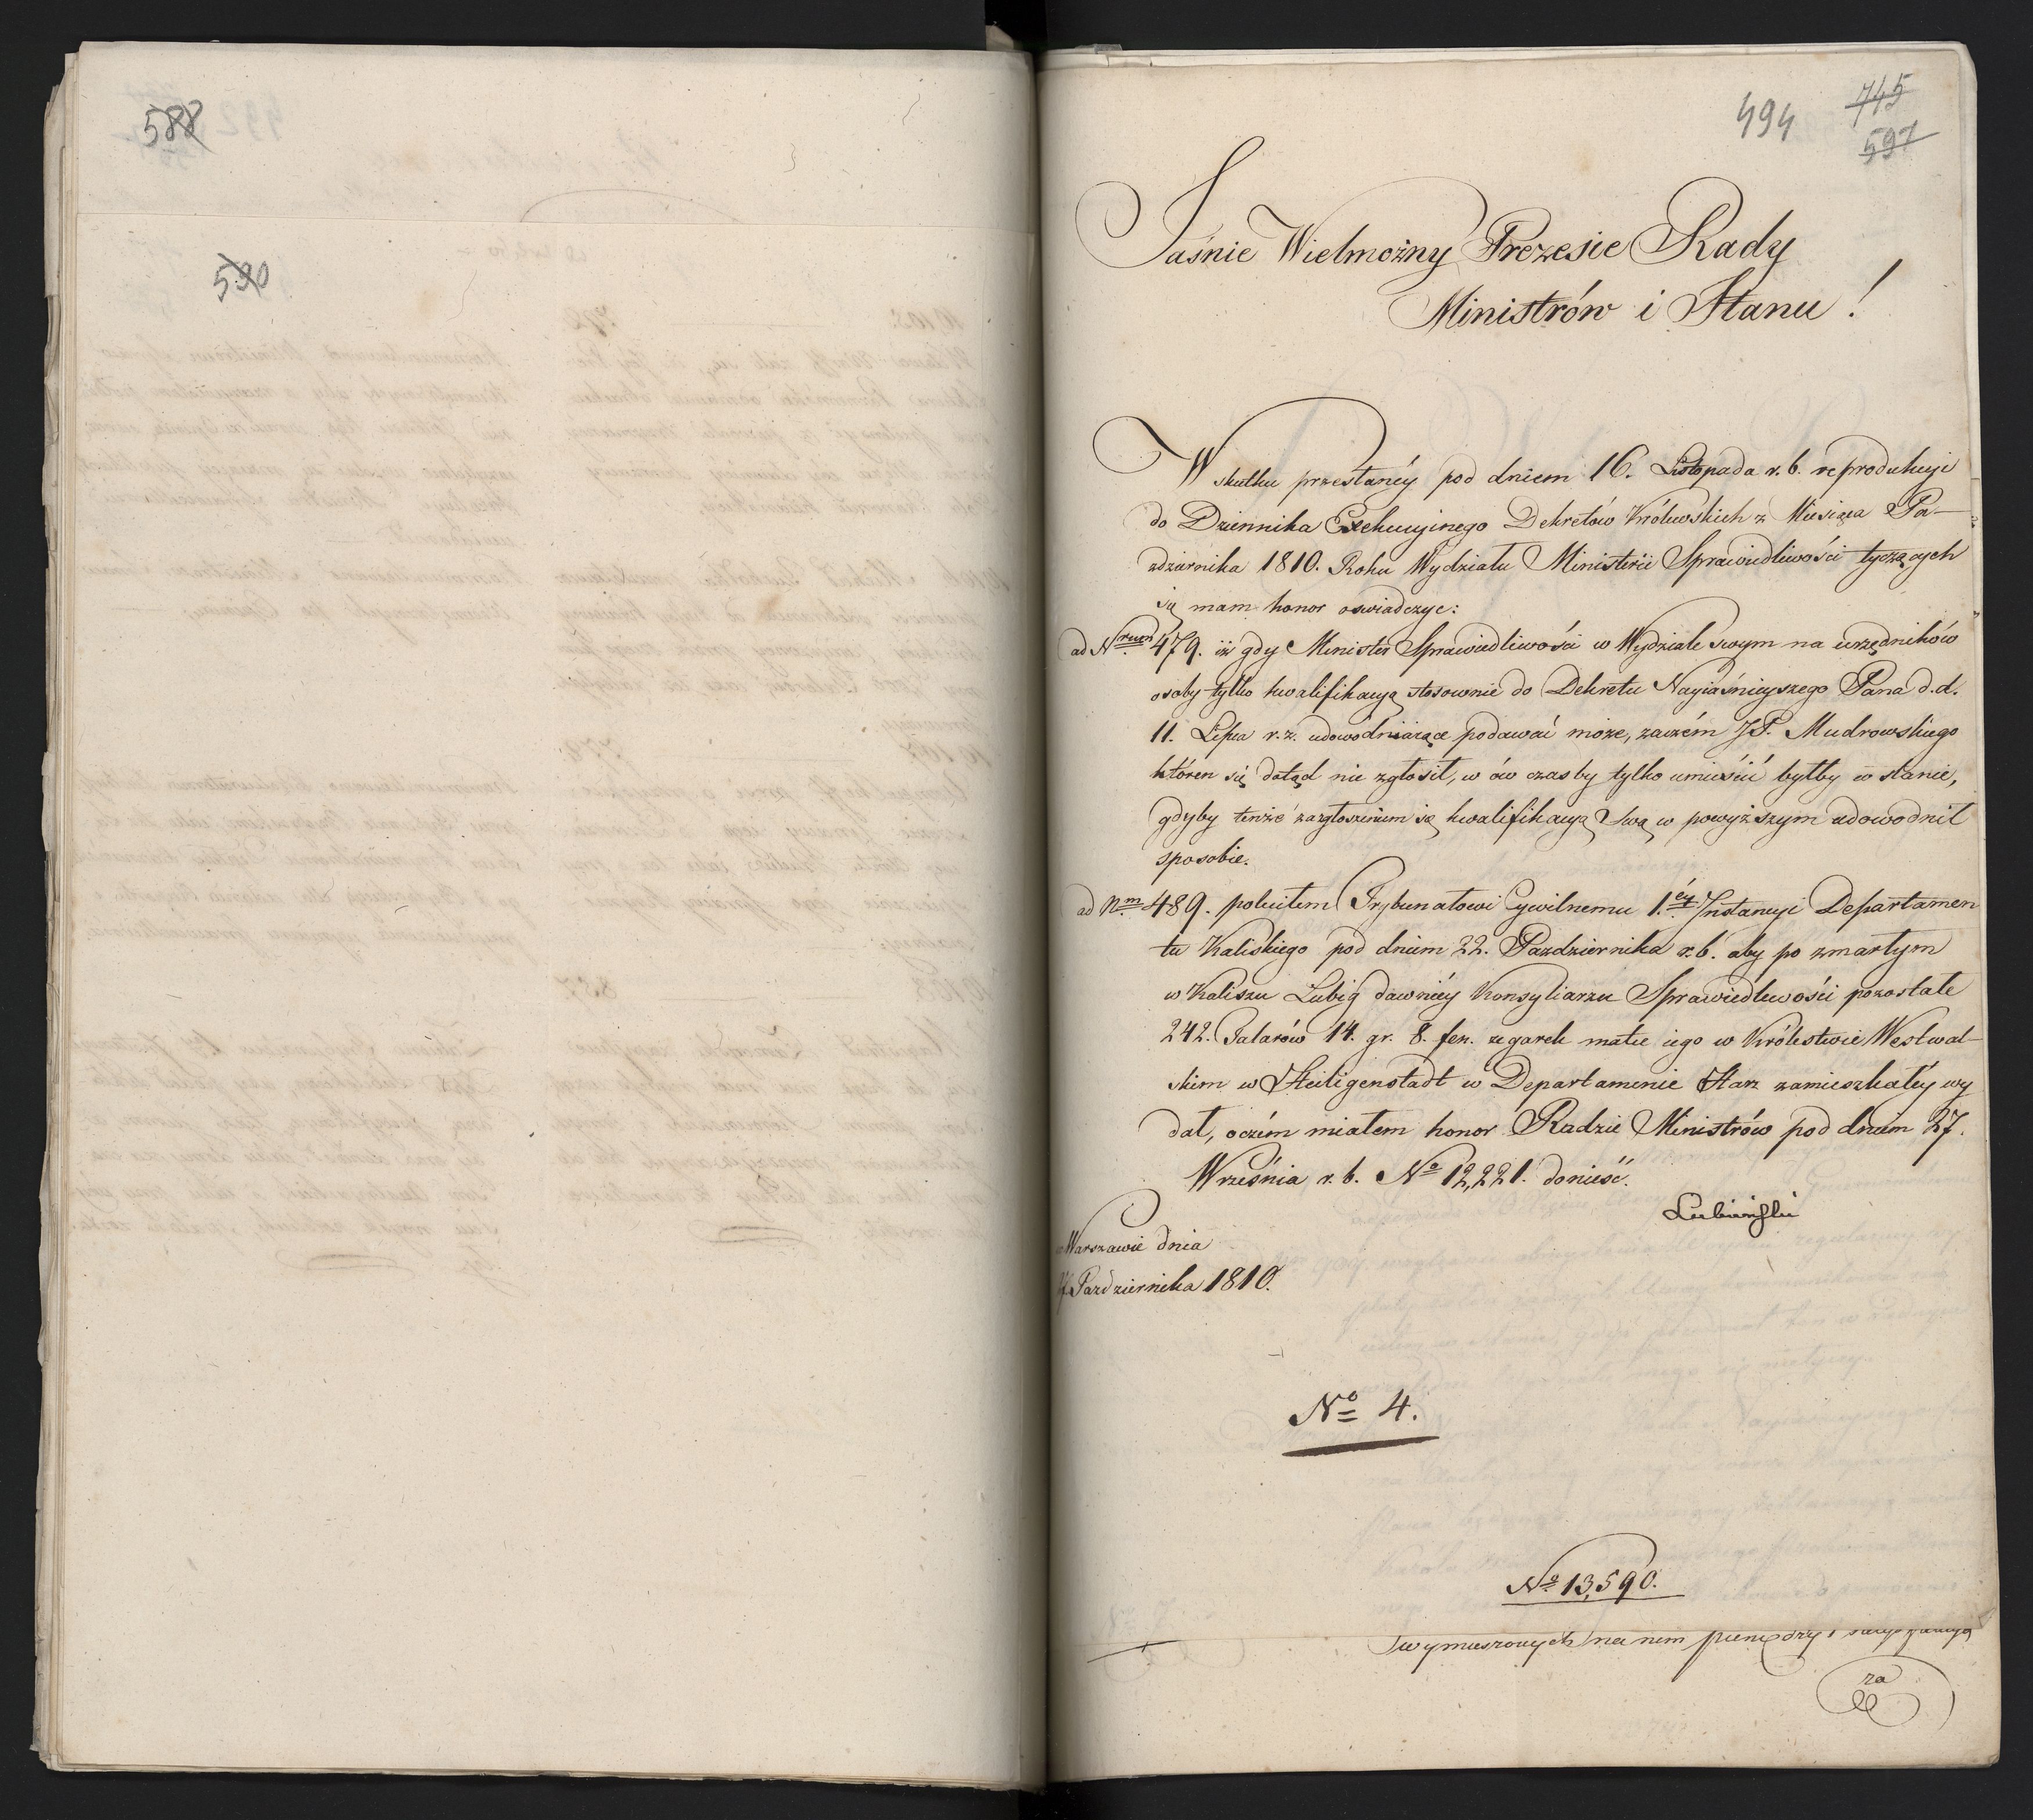 588
590
494
745
597
Jaśnie Wielmożny Prezesie Rady
Ministrów i Stanu!
W skutku przestanéy pod dniem 16. Listopada r.b. reprodukcyi
do Dziennika Exekucyinego Dekretów Królewskich z Miesiąca Pa-
zdziernika 1810. Roku Wydziału Ministerii Sprawiedliwości tyczących
się mam honor oswiadczyc:
ad Nrum 479. iż gdy Minister Sprawiedliwości w Wydziale swym na urzędników
osoby tylko kwalifikacyą stosownie do Dekretu Nayiaśnieyszego Pana d.d.
11. Lipca r.z. udowodniaiące podawać może, zaczém JP. Mudrowskiego
któren się dotąd nie zgłosił, w ów czas by tylko umieścić byłby w stanie,
gdyby tenże za zgłoszeniem się kwalifikacyą swą w powyższym udowodnił
sposobie.
ad Nm 489. poleciłem Trybunałowi Cywilnemu 1.éy Instancyi Departamen
tu Kaliskiego pod dniem 22. Pazdziernika r.b. aby po zmarłym
w Kaliszu Lubig dawniéy Konsyliarzu Sprawiedliwości pozostałe
242. Talarów 14. gr. 8. fen. zegarek matce iego w Królestwie Westwal-
skim w Heiligenstadt w Departamencie Harz zamieszkałéy wy
dał, oczém miałem honor Radzie Ministrów pod dniem 27.
Września r.b. No 12,221. donieść.
Lubieński
w Warszawie dnia
Pazdziernika 1810.
No 4.
No 13,590.
wymuszonych na nim pieniędzy i
za